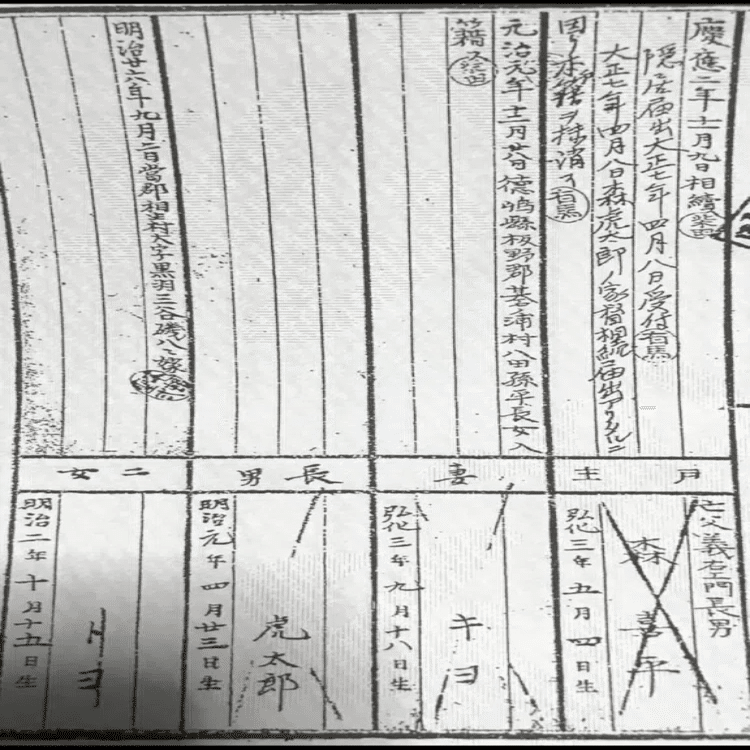 慶應二年十二月九日相續
隠居届出大正七年四月八日受付有馬
大正七年四月八日森虎太郎ノ家督相続届出アリタルニ
因リ本籍ヲ抹消ス有馬
元治元年十二月廿八日徳嶋縣板野郡基浦村八田孫平長女入
籍
明治廿六年九月二日當郡相生村大字黒羽三谷磯八へ嫁
戸主
妻
長男
二女
亡父義右エ門長男
森喜平
弘化三年五月四日生
キヨ
弘化三年九月十八日生
虎太郎
明治元年四月廿三日生
トヨ
明治二年十月十五日生